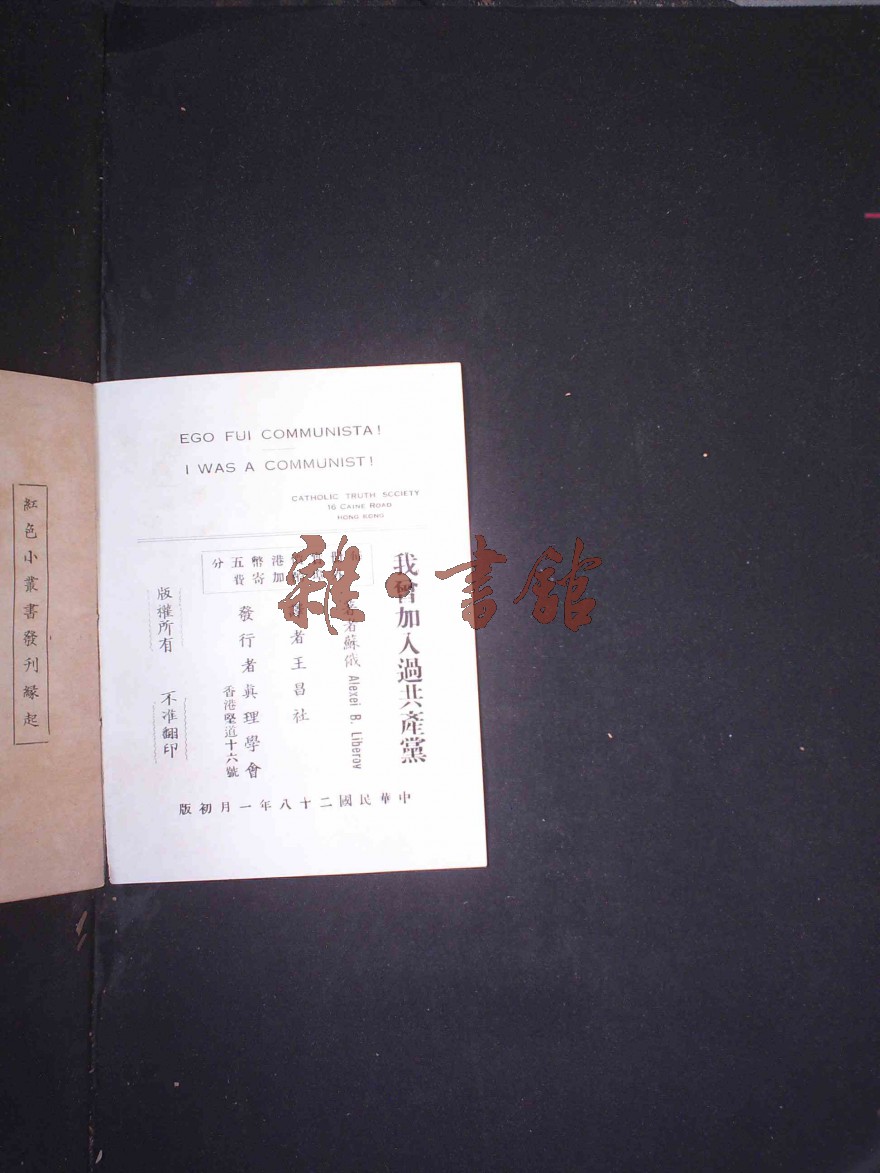 EGO FUI COMMUNISTA!
I WAS A COMMUNIST!
CATHOLIC TRUTH SOCIETY
16 CAINE ROAD
HONG KONG
我曾加入過共產黨
著者蘇俄 Alexei B. Liberov
者王昌社
發行者真理學會
香港堅道十六號
港幣五分
加寄費
版權所有 不准翻印
中華民國二十八年一月初版
紅色小叢書發刊緣起
雜·書館